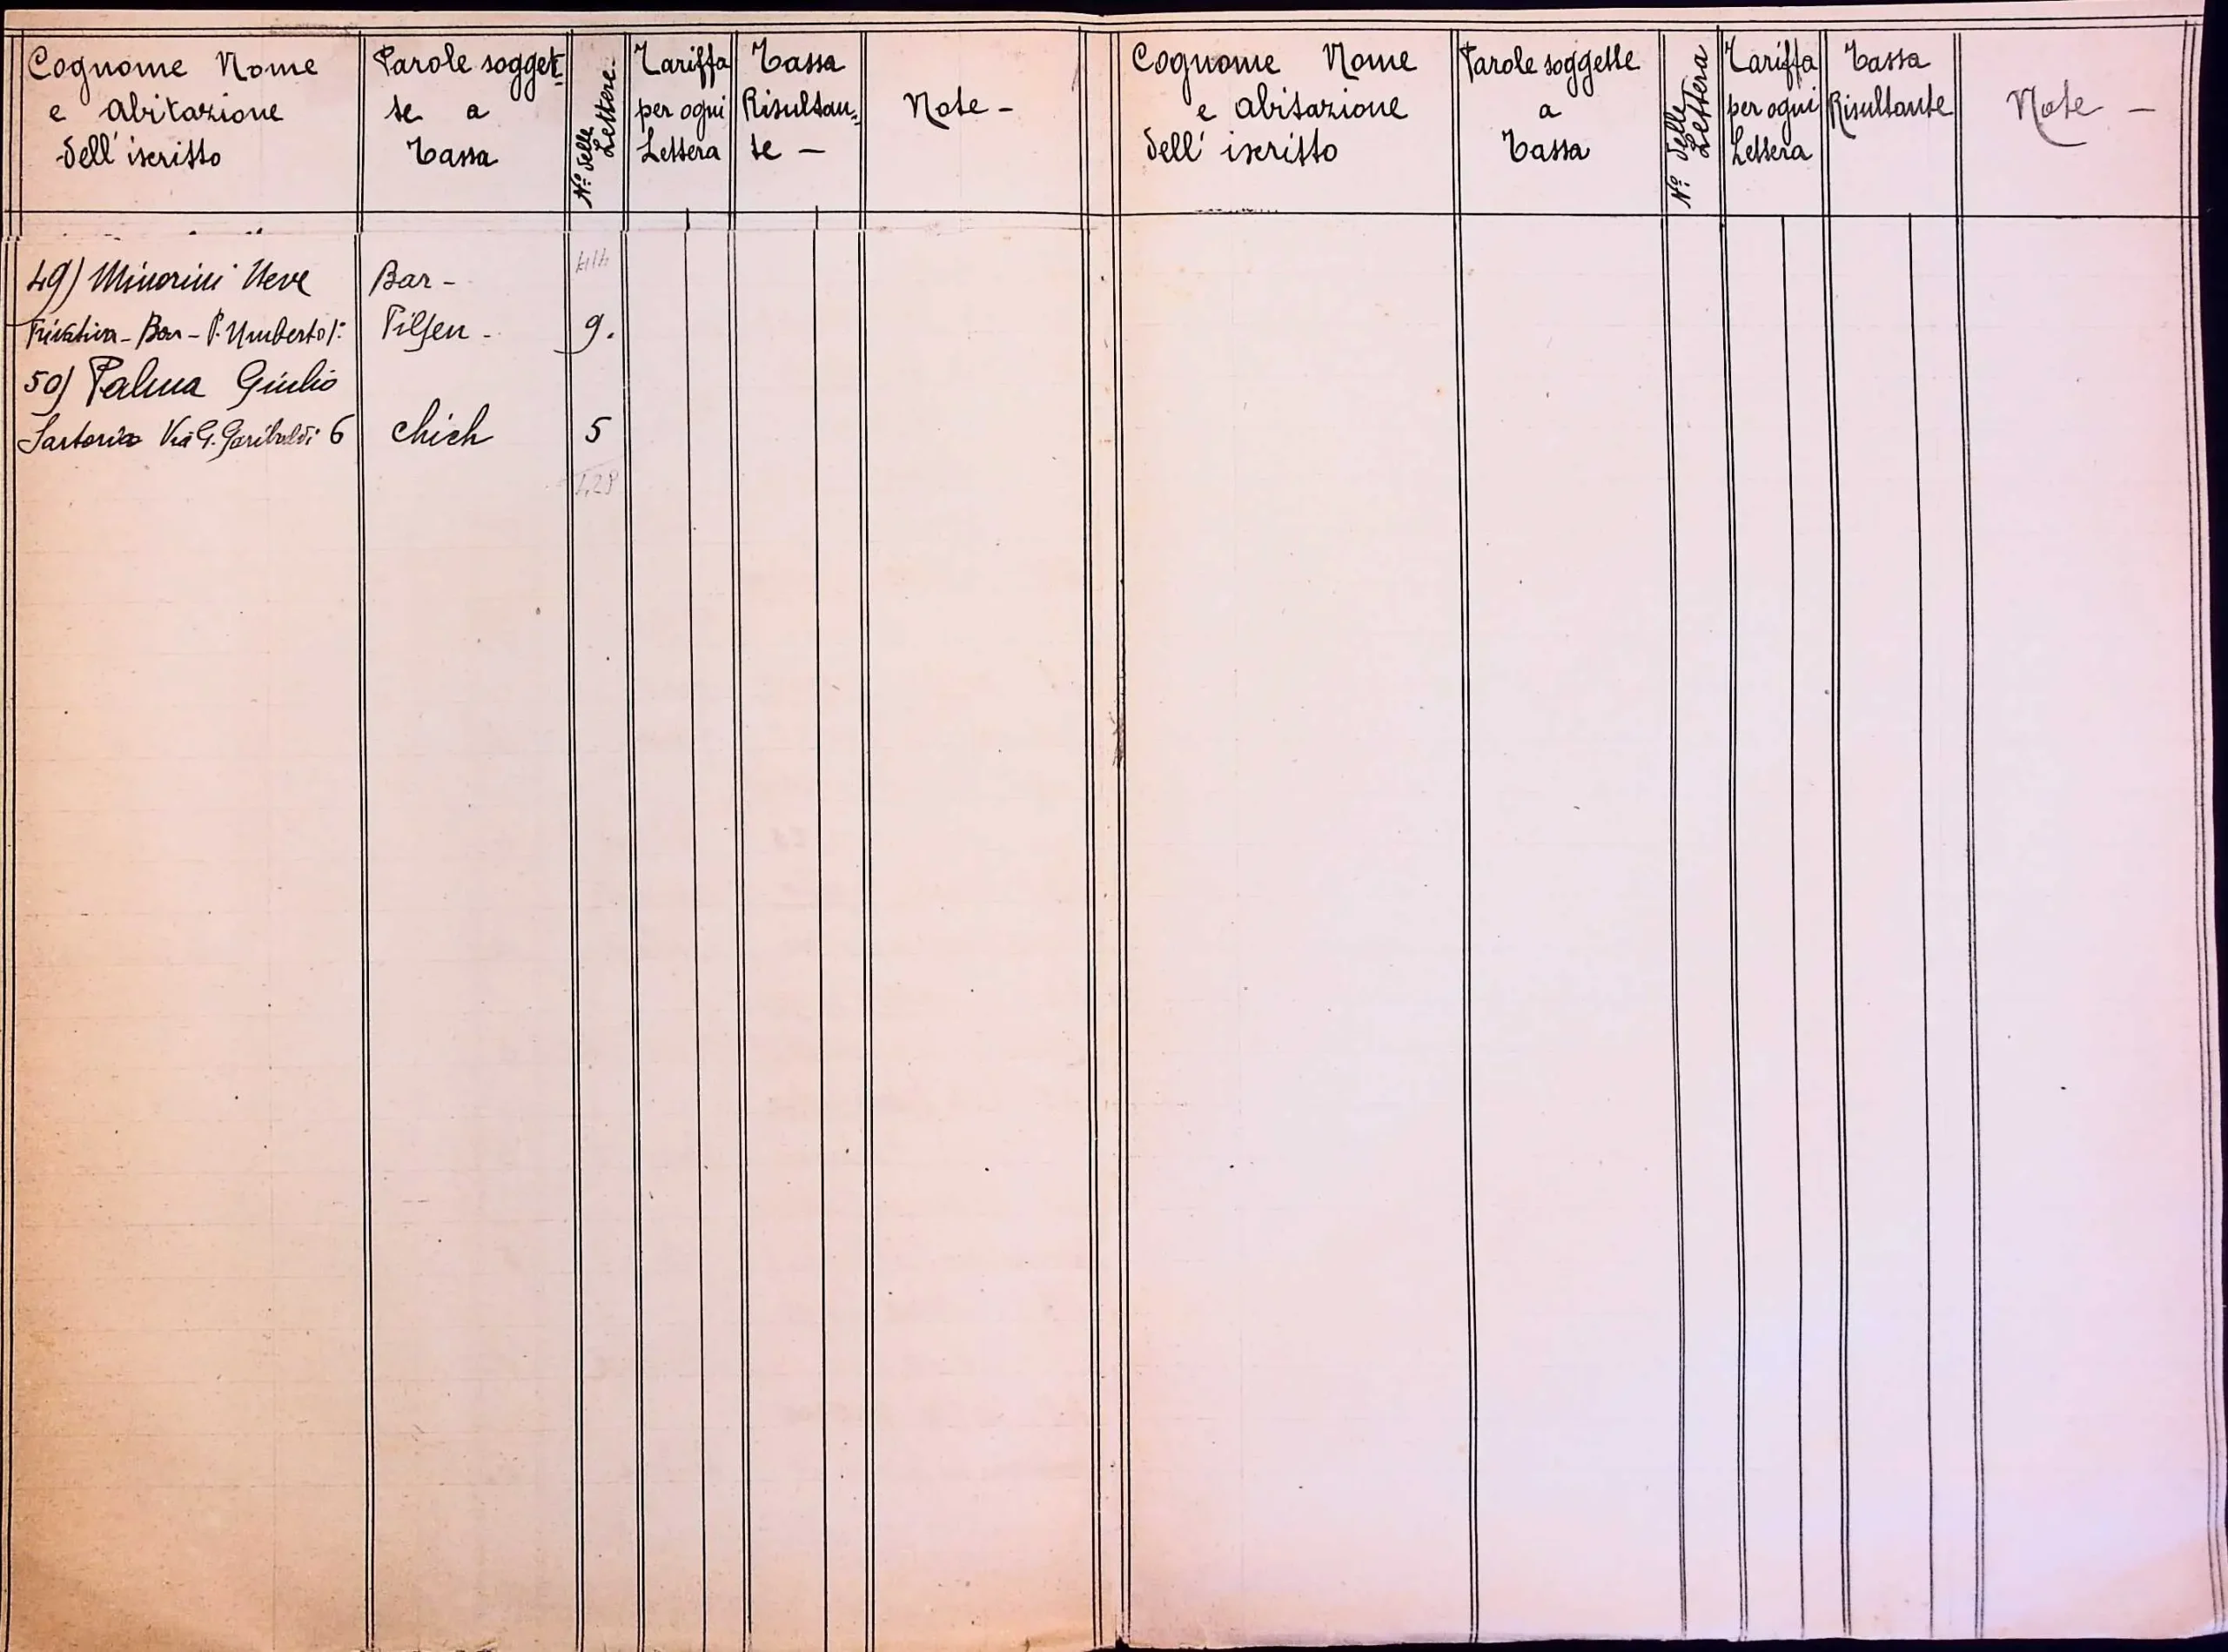 Cognome Nome
e abitazione
dell' iscritto
Parole sogget-
te a
Tassa
N.º delle
Lettere.
Tariffa
per ogni
Lettera
Tassa
Risultan-
te —
Note -
49) Minorini Neve
Privativa - Bar - P. Umberto I:
Bar -
Pilsen -
9.
50) Palma Giulio
Sartoria Via G. Garibaldi 6
chich
5
428
Cognome Nome
e abitazione
dell' iscritto
Parole soggette
a
Tassa
N.º delle
Lettera
Tariffa
per ogni
Lettera
Tassa
Risultante
Note -